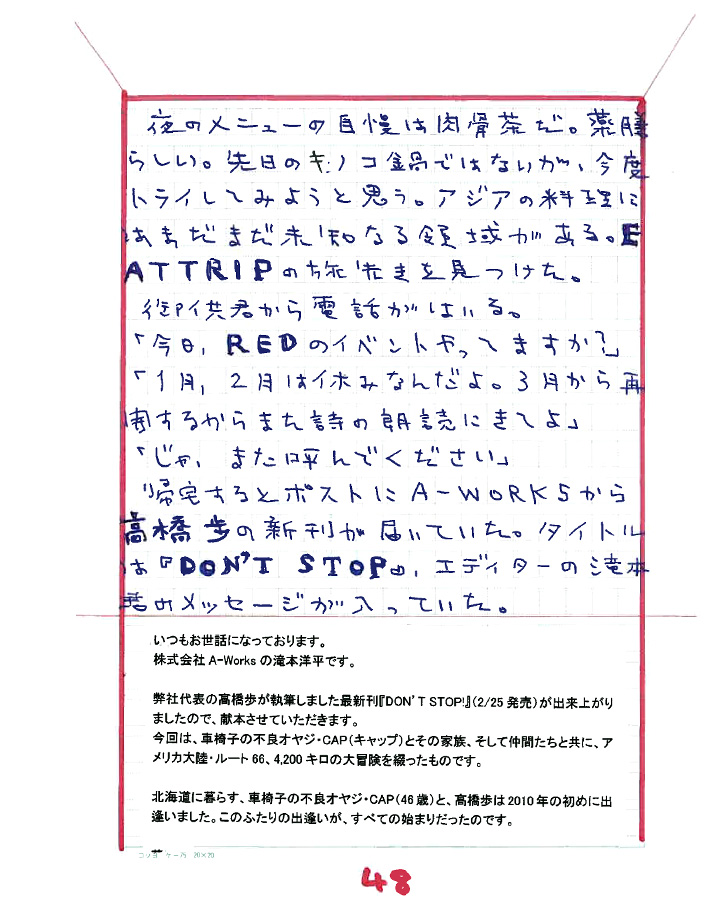 夜のメニューの自慢は肉骨茶だ。薬膳
らしい。先日のキノコ鍋ではないが、今度
トライしてみようと思う。アジアの料理に
はまだまだ未知なる領域がある。E
ATTRIPの旅先きを見つけた。
御供君から電話がはいる。
「今日，REDのイベントやってますか？」
「1月，2月は休みなんだよ。3月から再
開するからまた詩の朗読にきてよ」
「じゃ，また呼んでください」
帰宅するとポストにA-WORKSから
高橋歩の新刊が届いていた。タイトル
は『DON'T STOP』，エディターの滝本
君のメッセージが入っていた。
いつもお世話になっております。
株式会社A-Worksの滝本洋平です。
弊社代表の高橋歩が執筆しました最新刊『DON'T STOP!』（2/25発売）が出来上がり
ましたので、献本させていただきます。
今回は、車椅子の不良オヤジ・CAP（キャップ）とその家族、そして仲間たちと共に、ア
メリカ大陸・ルート66、4,200キロの大冒険を綴ったものです。
北海道に暮らす、車椅子の不良オヤジ・CAP（46歳）と、高橋歩は2010年の初めに出
逢いました。このふたりの出逢いが、すべての始まりだったのです。
20×20
48